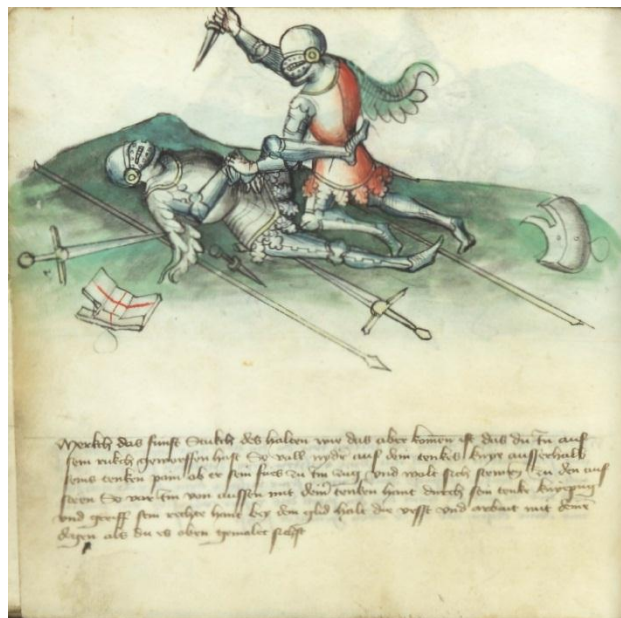 Merkch das funft Stukch des halten wie das aber komen ist das du in auf
sein rukch geworffen hast So vall nyder auf dein tenkes knye ausserhalb
seins tenken pain ob er sein fues zu im zug und wolt sich in den auf
steen So var im von aussen mit dein tenken hant durch sein tenke
und greiff sein rechte hant bey dem glid halt die vesst und arbait mit deinē
degen als du es oben gemalet sichst